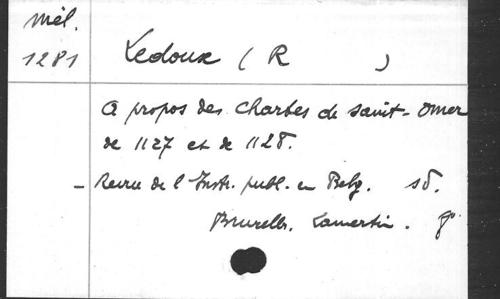 Mél.
1281
Ledoux (R )
A propos des Chartes de Saint-Omer
de 1127 et de 1128.
- Revue de l'Instr. publ. en Belg. sd.
Bruxelles. Lamertin. 8°